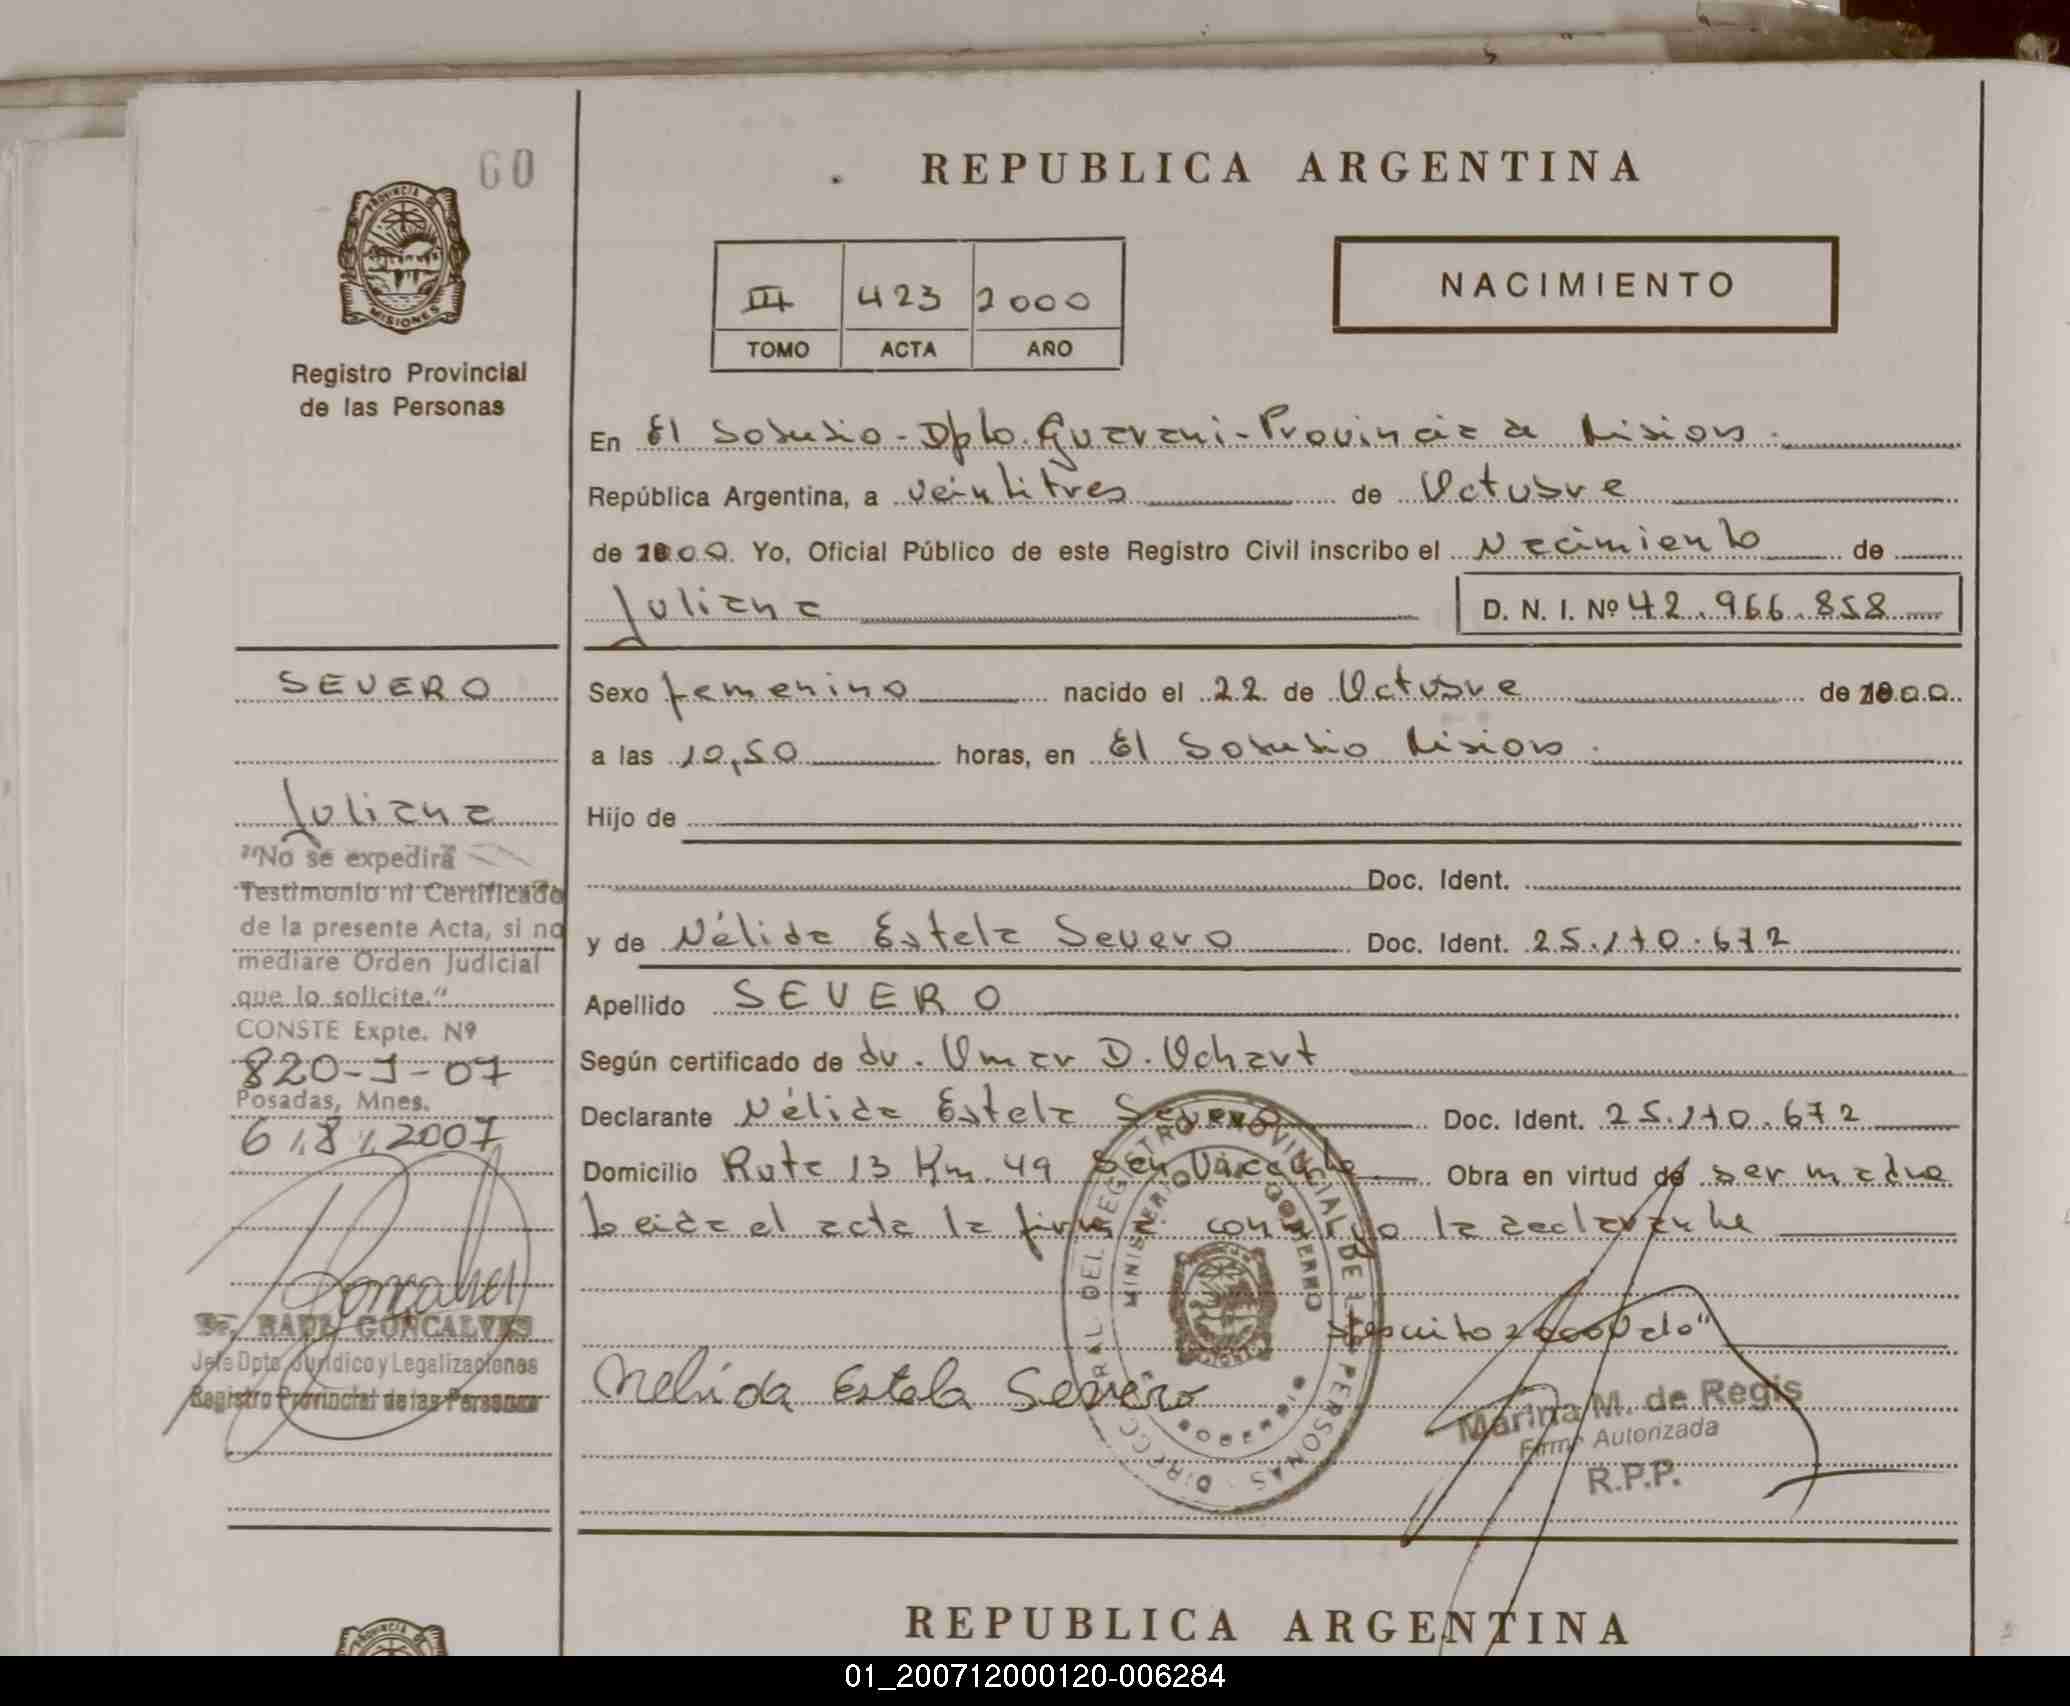 60
REPUBLICA ARGENTINA
PROVINCIA DE MISIONES
Registro Provincial
de las Personas
III 423 2000
TOMO ACTA AÑO
NACIMIENTO
En El Soberbio - Dpto. Guarani - Provincia de Misiones.
República Argentina, a veintitres de Octubre
de 2000. Yo, Oficial Público de este Registro Civil inscribo el Nacimiento de
Juliana D. N. I. Nº 42.966.858
Sexo femenino nacido el 22 de Octubre de 2000
a las 10,50 horas, en El Soberbio Misiones.
Hijo de
Doc. Ident.
y de Nélida Estela Severo Doc. Ident. 25.170.672
Apellido SEVERO
Según certificado de dr. Omar D. Ochart
Declarante Nélida Estela Severo Doc. Ident. 25.170.672
Domicilio Ruta 13 Km. 49 San Vicente Obra en virtud de ser madre
Leida el acta la firma conmigo la declarante
2000 Vale"
Nelida Estela Severo
Marina M. de Regis
Firma Autorizada
R.P.P.
DIRECC GENERAL DEL REGISTRO PROVINCIAL DE LAS PERSONAS
MINISTERIO DE GOBIERNO
SEVERO
Juliana
"No se expedirá
Testimonio ni Certificado
de la presente Acta, si no
mediare Orden Judicial
que lo solicite."
CONSTE Expte. Nº
820-J-07
Posadas, Mnes.
6/8/2007
Dr. RAUL GONCALVES
Jefe Dpto. Jurídico y Legalizaciones
Registro Provincial de las Personas
REPUBLICA ARGENTINA
01_200712000120-006284